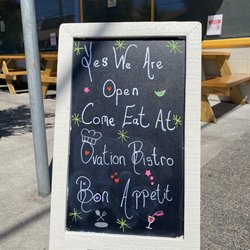 Yes We Are
Open
Come Eat At
Ovation Bistro
Bon Appetit